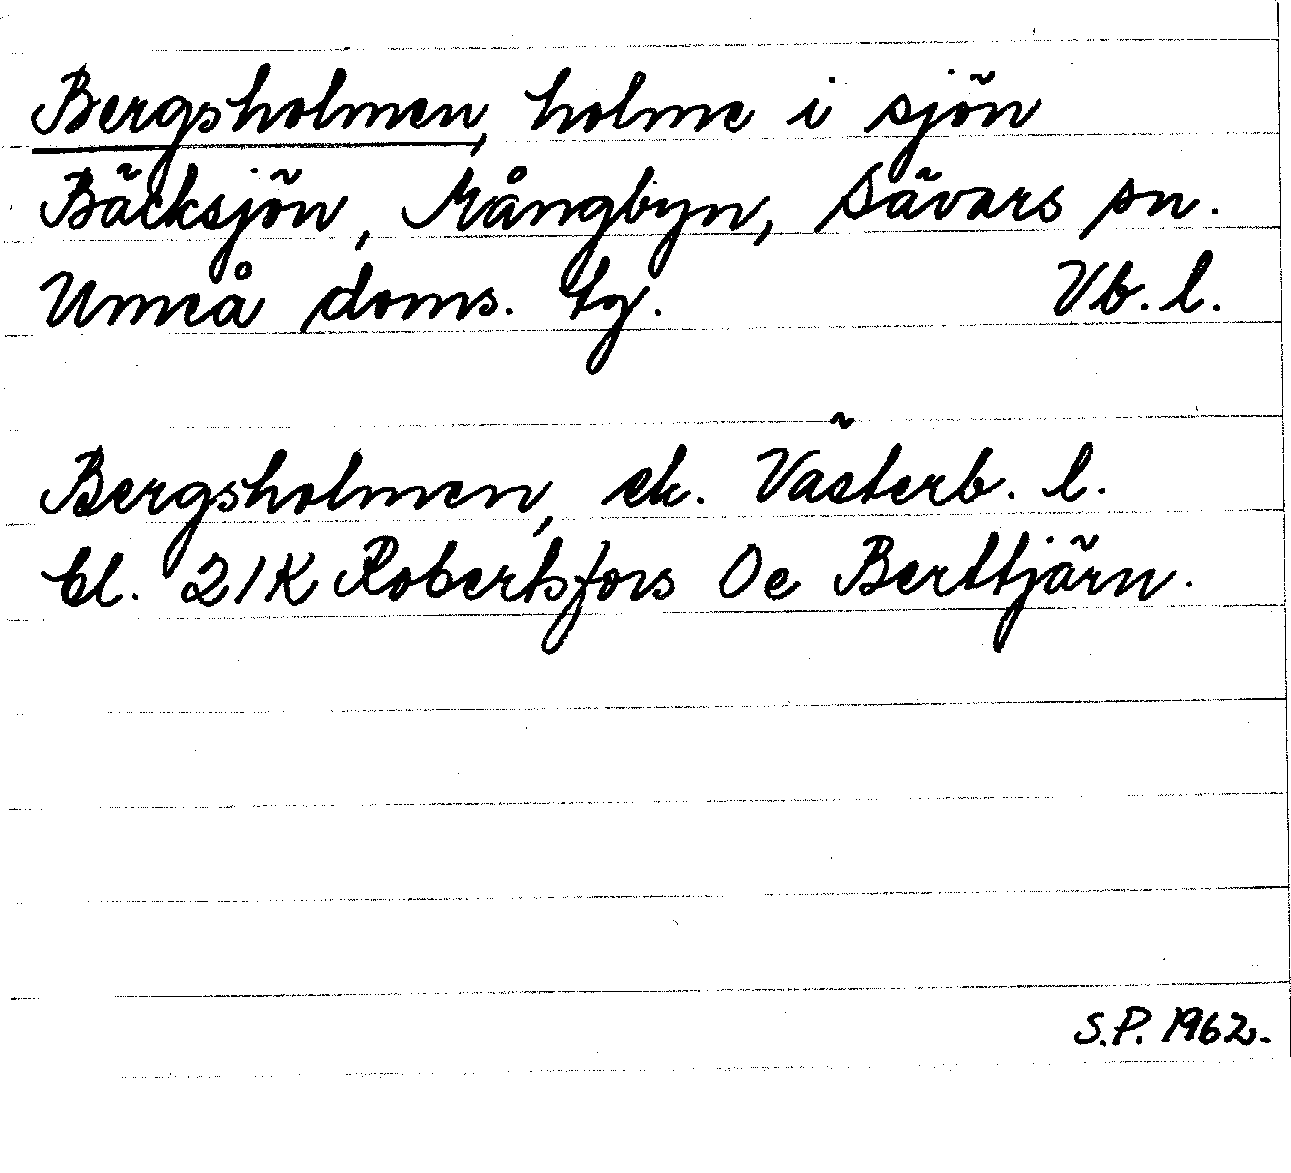 Bergsholmen, holme i sjön
Bäcksjön, Mångbyn, Sävars sn.
Umeå doms. tg. Vb. l.
Bergsholmen, ek. Västerb. l.
bl. 21K Robertsfors 0e Berttjärn.
S.P. 1962.